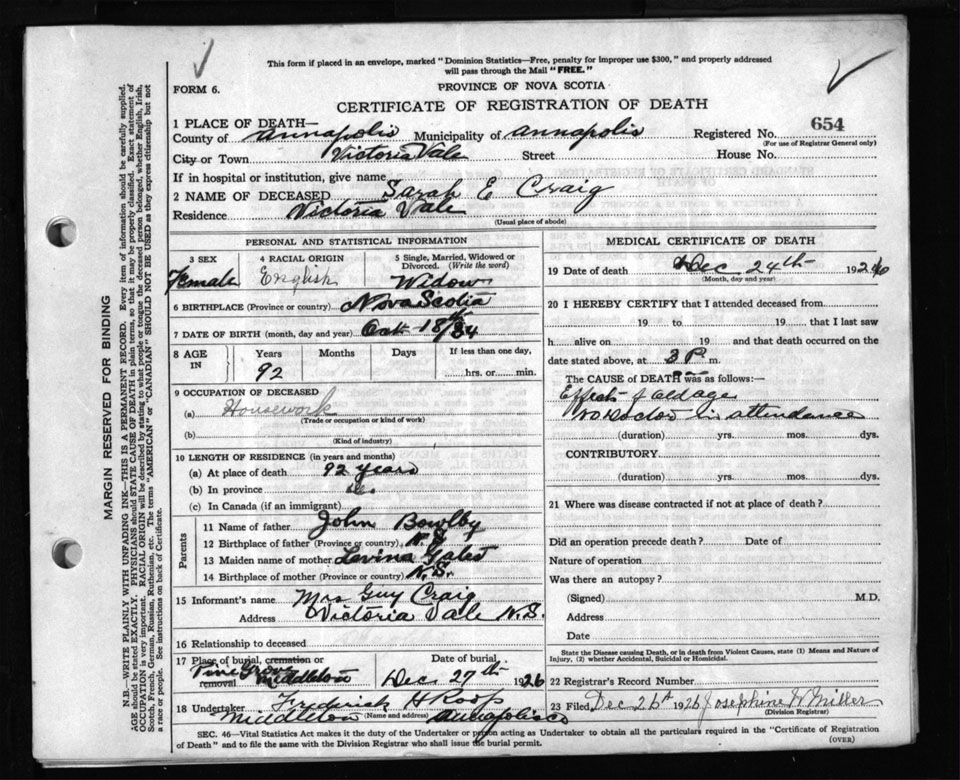 This form if placed in an envelope, marked "Dominion Statistics—Free, penalty for improper use $300," and properly addressed
will pass through the Mail "FREE."
FORM 6.
PROVINCE OF NOVA SCOTIA
CERTIFICATE OF REGISTRATION OF DEATH
1 PLACE OF DEATH—
County of Annapolis Municipality of Annapolis Registered No. 654
(For use of Registrar General only)
City or Town Victoria Vale Street House No.
If in hospital or institution, give name
2 NAME OF DECEASED Sarah E Craig
Residence Victoria Vale
(Usual place of abode)
PERSONAL AND STATISTICAL INFORMATION
3 SEX 4 RACIAL ORIGIN 5 Single, Married, Widowed or Divorced. (Write the word)
Female English Widow
6 BIRTHPLACE (Province or country) Nova Scotia
7 DATE OF BIRTH (month, day and year) Oct 18th/34
8 AGE IN Years Months Days If less than one day,
92 hrs. or min.
9 OCCUPATION OF DECEASED
(a) Housework
(Trade or occupation or kind of work)
(b)
(Kind of industry)
10 LENGTH OF RESIDENCE (in years and months)
(a) At place of death 92 years
(b) In province
(c) In Canada (if an immigrant)
Parents
11 Name of father John Bowlby
12 Birthplace of father (Province or country) N.S.
13 Maiden name of mother Levina
14 Birthplace of mother (Province or country) N.S.
15 Informant's name Mrs Guy Craig
Address Victoria Vale N.S.
16 Relationship to deceased
17 Place of burial, cremation or removal Pine Grove Middleton
Date of burial Dec 27th 1926
18 Undertaker Frederick H Roop
Middleton (Name and address) Annapolis Co
MEDICAL CERTIFICATE OF DEATH
19 Date of death Dec 24th 1926
(Month, day and year)
20 I HEREBY CERTIFY that I attended deceased from
19 to 19 that I last saw
h alive on 19 and that death occurred on the
date stated above, at 3 P. m.
The CAUSE of DEATH was as follows:—
Effects of old age
No Doctor in attendance
(duration) yrs. mos. dys.
CONTRIBUTORY
(duration) yrs. mos. dys.
21 Where was disease contracted if not at place of death?
Did an operation precede death? Date of
Nature of operation
Was there an autopsy?
(Signed) M.D.
Address
Date
State the Disease causing Death, or in death from Violent Causes, state (1) Means and Nature of
Injury, (2) whether Accidental, Suicidal or Homicidal.
22 Registrar's Record Number
23 Filed Dec 26th 1926 Josephine W Miller
(Division Registrar)
SEC. 46—Vital Statistics Act makes it the duty of the Undertaker or person acting as Undertaker to obtain all the particulars required in the "Certificate of Registration
of Death" and to file the same with the Division Registrar who shall issue the burial permit. (OVER)
MARGIN RESERVED FOR BINDING
N.B.—WRITE PLAINLY WITH UNFADING INK—THIS IS A PERMANENT RECORD. Every item of information should be carefully supplied.
AGE should be stated EXACTLY. PHYSICIANS should STATE CAUSE OF DEATH in plain terms, so that it may be properly classified. Exact statement of
OCCUPATION is very important. RACIAL ORIGIN will be described by stating to what people or tongue the deceased person belonged, whether English, Irish,
Scotch, French, German, Russian, Ruthenian, etc. The terms "AMERICAN" or "CANADIAN" SHOULD NOT BE USED as they express citizenship but not
a race or people. See instructions on back of Certificate.